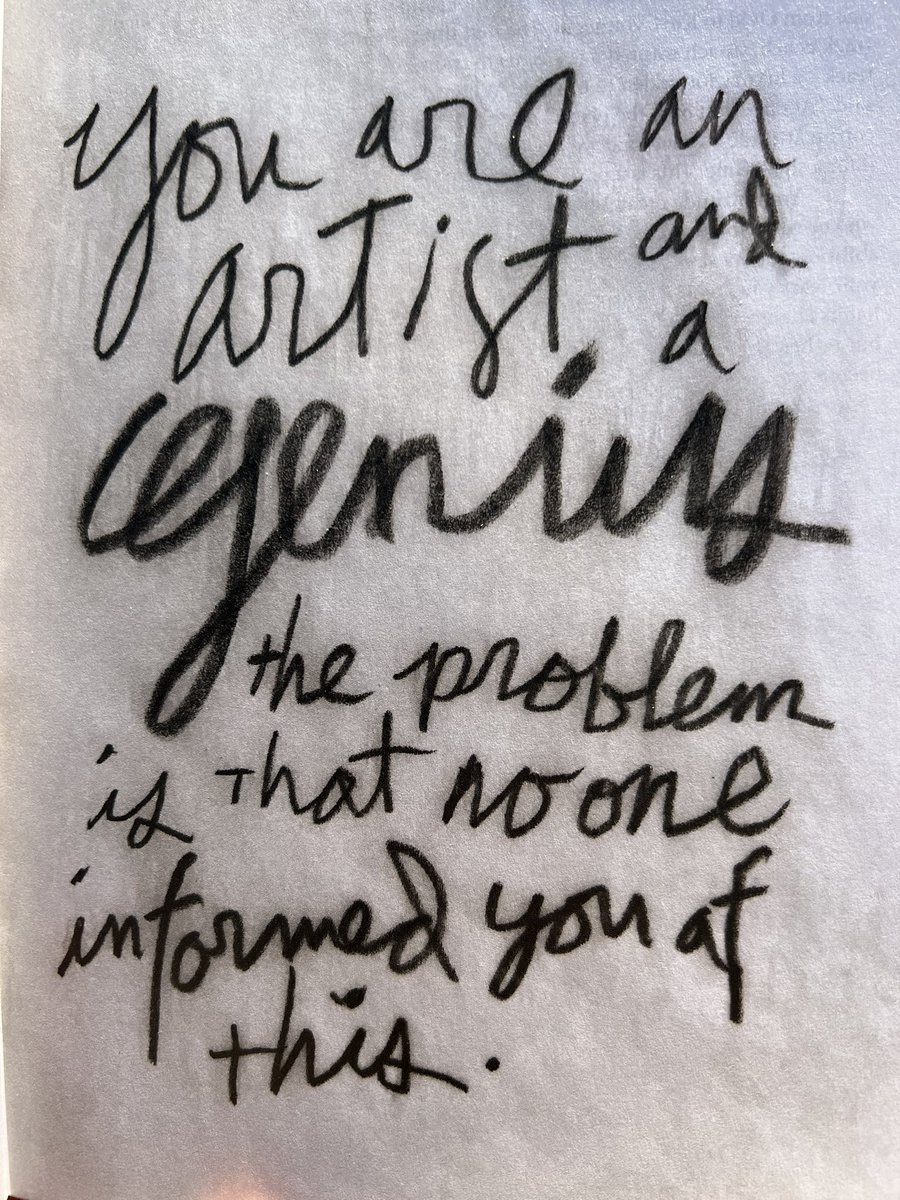 you are an
artist and
a
genius
the problem
is that no one
informed you of
this.